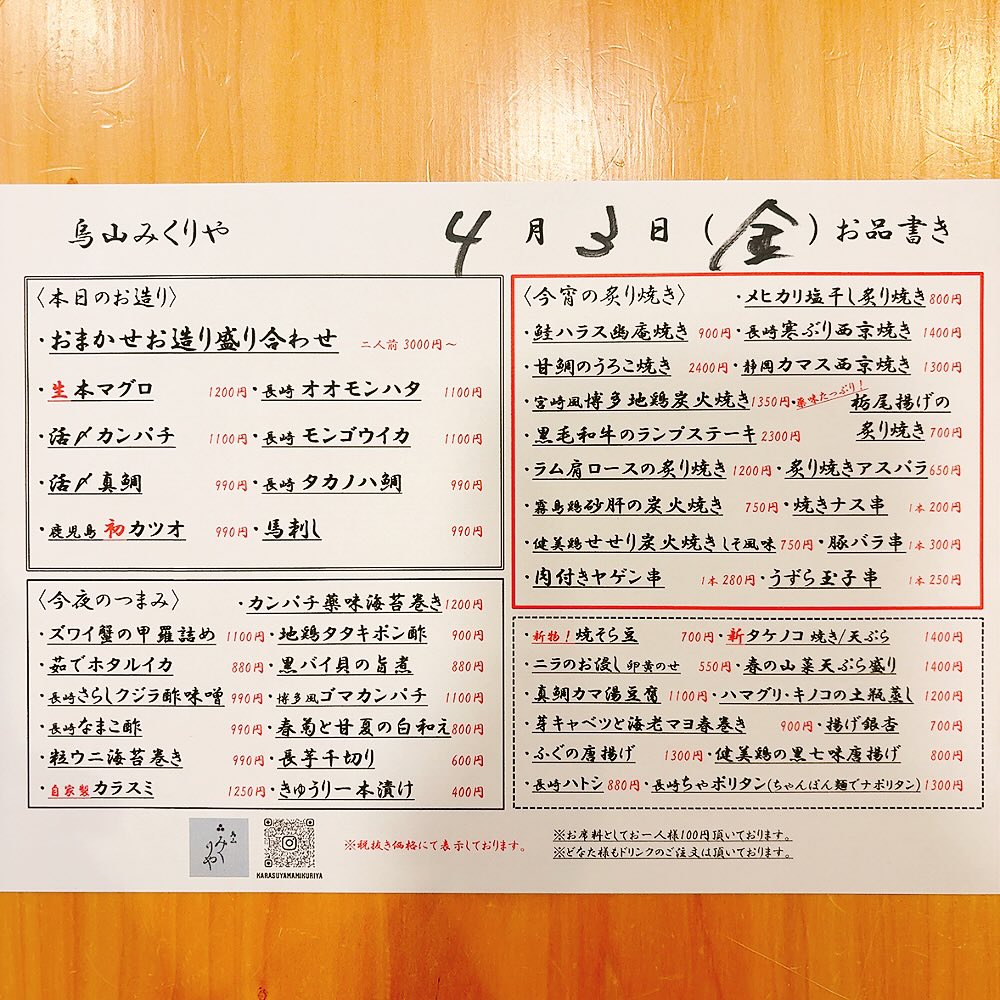 烏山みくりや 4月3日(金)お品書き
〈本日のお造り〉
・おまかせお造り盛り合わせ 二人前 3000円～
・生本マグロ 1200円・長崎 オオモンハタ 1100円
・活〆カンパチ 1100円・長崎 モンゴウイカ 1100円
・活〆真鯛 990円・長崎 タカノハ鯛 990円
・鹿児島 初カツオ 990円・馬刺し 990円
〈今夜のつまみ〉 ・カンパチ薬味海苔巻き1200円
・ズワイ蟹の甲羅詰め 1100円・地鶏タタキポン酢 900円
・茹でホタルイカ 880円・黒バイ貝の旨煮 880円
・長崎さらしクジラ酢味噌 990円・博多風ゴマカンパチ 1100円
・長崎なまこ酢 990円・春菊と甘夏の白和え800円
・粒ウニ海苔巻き 990円・長芋千切り 600円
・自家製カラスミ 1250円・きゅうり一本漬け 400円
〈今宵の炙り焼き〉 ・メヒカリ塩干し炙り焼き800円
・鮭ハラス幽庵焼き 900円・長崎寒ぶり西京焼き 1400円
・甘鯛のうろこ焼き 2400円・静岡カマス西京焼き 1300円
・宮崎風博多地鶏炭火焼き1350円・薬味たっぷり!栃尾揚げの
・黒毛和牛のランプステーキ 2300円 炙り焼き 700円
・ラム肩ロースの炙り焼き 1200円・炙り焼きアスパラ650円
・霧島鶏砂肝の炭火焼き 750円・焼きナス串 1本 200円
・健美鶏せせり炭火焼き しそ風味 750円・豚バラ串 1本 300円
・肉付きヤゲン串 1本 280円・うずら玉子串 1本 250円
・新物!焼そら豆 700円・新タケノコ 焼き/天ぷら 1400円
・ニラのお浸し 卵黄のせ 550円・春の山菜天ぷら盛り 1400円
・真鯛カマ湯豆腐 1100円・ハマグリ・キノコの土瓶蒸し 1200円
・芽キャベツと海老マヨ春巻き 900円・揚げ銀杏 700円
・ふぐの唐揚げ 1300円・健美鶏の黒七味唐揚げ 800円
・長崎ハトシ 880円・長崎ちゃポリタン(ちゃんぽん麺でナポリタン)1300円
みくりや
KARASUYAMAMIKURIYA
※税抜き価格にて表示しております。
※お席料としてお一人様100円頂いております。
※どなた様もドリンクのご注文は頂いております。